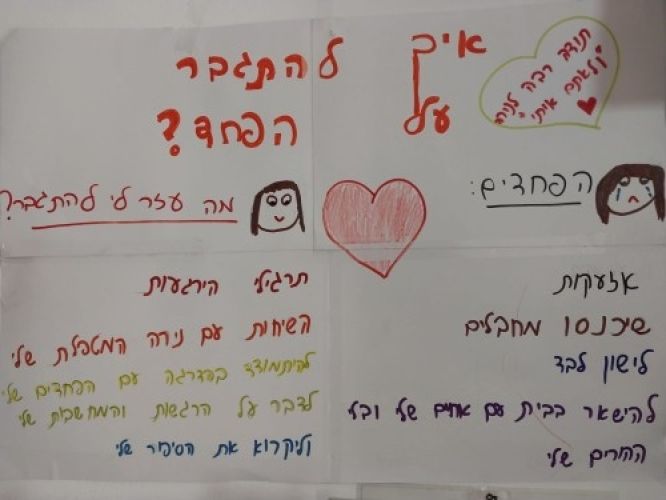 איך להתגבר
על הפחד?
תודה רבה לנירה
שאתם איתי
הפחדים:
אזעקות
שיכנסו מחבלים
לישון לבד
להישאר בבית עם אחים שלי ובלי
ההורים שלי
מה עזר לי להתגבר?
תרגילי הירגעות
השיחות עם נירה המטפלת שלי
להיתמודד בהדרגה עם הפחדים שלי
לדבר על הרגשות והמחשבות שלי
וליקרוא את הסיפור שלי